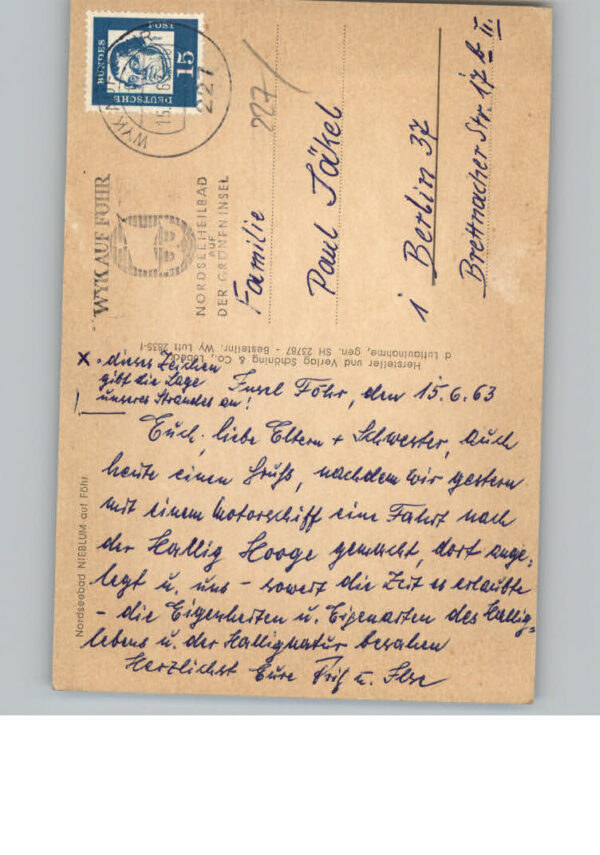 DEUTSCHE
BUNDES
POST
15
WYK AUF FÖHR
227
WYK AUF FÖHR
NORDSEEHEILBAD
AUF
DER GRÜNEN INSEL
227
Familie
Paul Jäkel
1 Berlin 37
Brettnacher Str. 17 b II.
Hersteller und Verlag Schöning & Co., Lübeck
d Luftaufnahme, gen. SH 23787 - Bestellnr. Wy Luft 2835-1
Nordseebad NIEBLUM auf Föhr
x. dieses Zeichen
gibt die Lage
unseres Strandes an!
Insel Föhr, den 15.6.63
Euch, liebe Eltern + Schwester, auch
heute einen Gruß, nachdem wir gestern
mit einem Motorschiff eine Fahrt nach
der Hallig Hooge gemacht, dort ange-
legt u. uns - soweit die Zeit es erlaubte
- die Eigenheiten u. Eigenarten des Hallig=
lebens u. der Hallignatur besahen
Herzlichst Eure u. Ilse